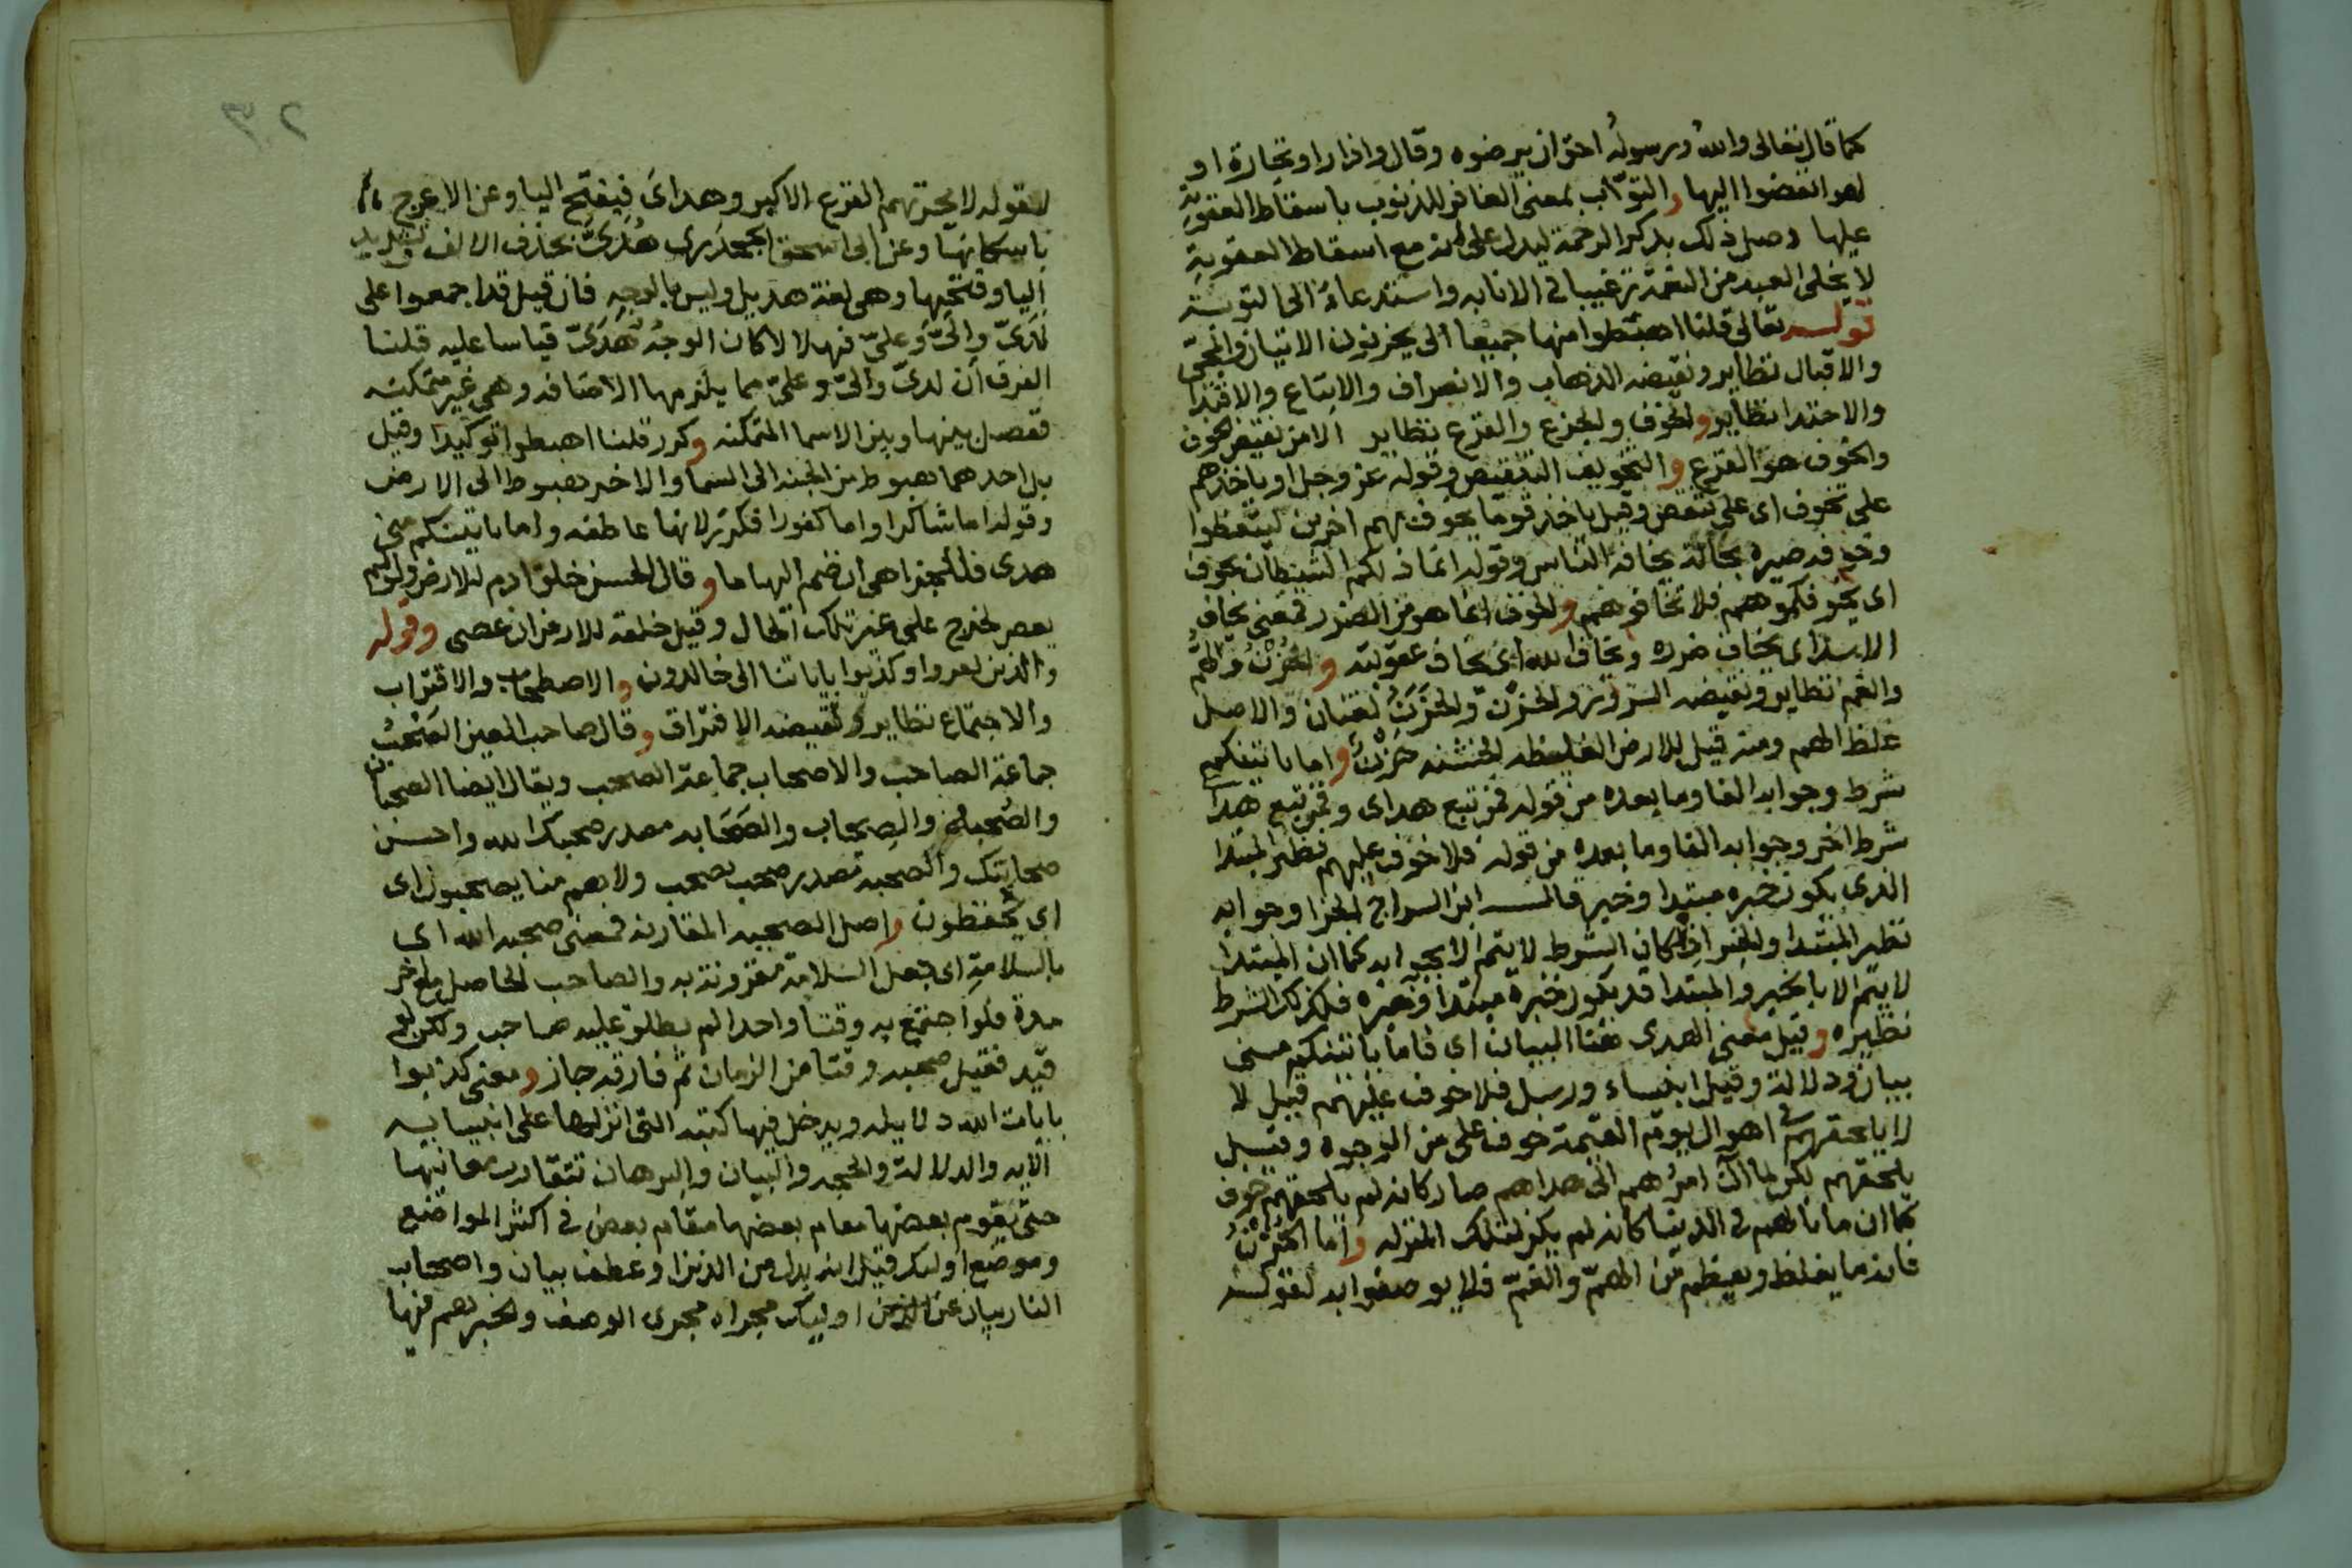 كما قال تعالى والله ورسوله احق ان يرضوه وقال واذا راوا تجارة او
لهوا انفضوا اليها والتواب بمعنى الغافر للذنوب باسقاط العقوبة
عليها وصل ذلك بذكر الرحمة ليدل على انه مع اسقاط العقوبة
لا يخلى العبد من النعمة ترغيبا فى الانابه واستدعاءً الى التوبة
قوله تعالى قلنا اهبطوا منها جميعا الى يحزنون الاتيان والمجى
والاقبال نظاير ونقيضه الذهاب والانصراف والاتباع والاقتدا
والاحتذا نظاير والخوف والجزع والفزع نظاير الامن نقيض الخوف
والخوف هو الفزع والتخويف التنقيص وقوله عز وجل او ياخذهم
على تخوف اى على تنقص وقيل ياخذ قوما يخوف بهم اخرين ليتعظوا
وخوفه صيره بحالة يخافه الناس وقوله انما ذلكم الشيطان يخوف
اى يخوفكموهم فلا تخافوهم والخوف انما هو من الضرر فمعنى يخاف
الاسد اى يخاف ضرره ويخاف الله اى يخاف عقوبته والحزن والهم
والغم نظاير ونقيضه السرور والحزن والحزن لغتان والاصل
غلظ الهم ومنه قيل للارض الغليظه الخشنه حزن واما ياتينكم
شرط وجوابه الفا وما بعده من قوله فمن تبع هداى وفمن تبع هداى
شرط اخر وجوابه الفا وما بعده من قوله فلا خوف عليهم نظير المبتدا
الذى يكون خبره مبتدا وخبر قال ابن السراج الجزا وجوابه
نظير المبتدا والخبر اذ كان الشرط لا يتم الا بجوابه كما ان المبتدا
لا يتم الا بالخبر والمبتدا قد يكون خبره مبتدا وخبره فكذلك الشرط
نظيره وقيل معنى الهدى هنا البيان اى فاما ياتينكم منى
بيان ودلالة وقيل انبياء ورسل فلا خوف عليهم قيل لا
لا يلحقهم فى اهوال يوم القيمة خوف على من الوجوه وقيل
يلحقهم لكن لما آل امرهم الى هداهم صار كانه لم يلحقهم خوف
كما ان ما نالهم فى الدنيا كانه لم يكن لتلك المنزله واما الحزن
فانه ما يغلظ ويعظم من الهم والغم فلا يوصفوا به لقوله
٢٠٣
لقوله لا يحزنهم الفزع الاكبر وهداى فيفتح اليا وعن الاعرج
باسكانها وعن ابى اسحق الجحدرى هُدَىَّ بحذف الالف وتشديد
اليا وفتحها وهى لغة هذيل وليس بالوجه فان قيل قد اجمعوا على
لدىّ والىّ وعلىّ فهلا كان الوجه هدىّ قياسا عليه قلنا
الفرق ان لدىّ والىّ وعلىّ مما يلزمها الاضافه وهى غير متمكنه
ففصل بينها وبين الاسما المتمكنه وكرر قلنا اهبطوا توكيدا وقيل
بل احدهما هبوط من الجنه الى السما والاخر هبوط الى الارض
وقوله اما شاكرا واما كفورا فكرر لانها عاطفه واما ياتينكم منى
هدى فللجزا هى ان ضم اليها ما وقال الحسن خلق ادم للارض ولو لم
يعص لخرج على غير تلك الحال وقيل خلقه للارض ان عصى وقوله
والذين كفروا وكذبوا باياتنا الى خالدون والاصطحاب والاقتراب
والاجتماع نظاير ونقيضه الافتراق وقال صاحب العين الصحب
جماعة الصاحب والاصحاب جماعة الصحب ويقال ايضا الصحبان
والصُحبه والصِحاب والصَحَابه مصدر صحبك الله واحسن
صحابتك والصحبه مصدر صحب يصحب ولا هم منا يصحبون اى
اى يحفظون واصل الصحبه المقارنه فمعنى صحبه الله اى
بالسلامة اى جعل السلامة مقرونة به والصاحب الحاصل مع اخر
مدة فلو اجتمع به وقتا واحدا لم يطلق عليه صاحب ولكن لو
قيد فقيل صحبه وقتا من الزمان ثم فارقه جاز ومعنى كذبوا
بايات الله دلايله ويدخل فيها كتبه التى انزلها على انبيايه
الايه والدلالة والحجه والبيان والبرهان تتقارب معانيها
حتى يقوم بعضها مقام بعضها مقام بعض فى اكثر المواضع
وموضع اوليك قيل انه بدل من الذين او عطف بيان واصحاب
النار بيان عن اوليك مجراه مجرى الوصف والخبر هم فيها